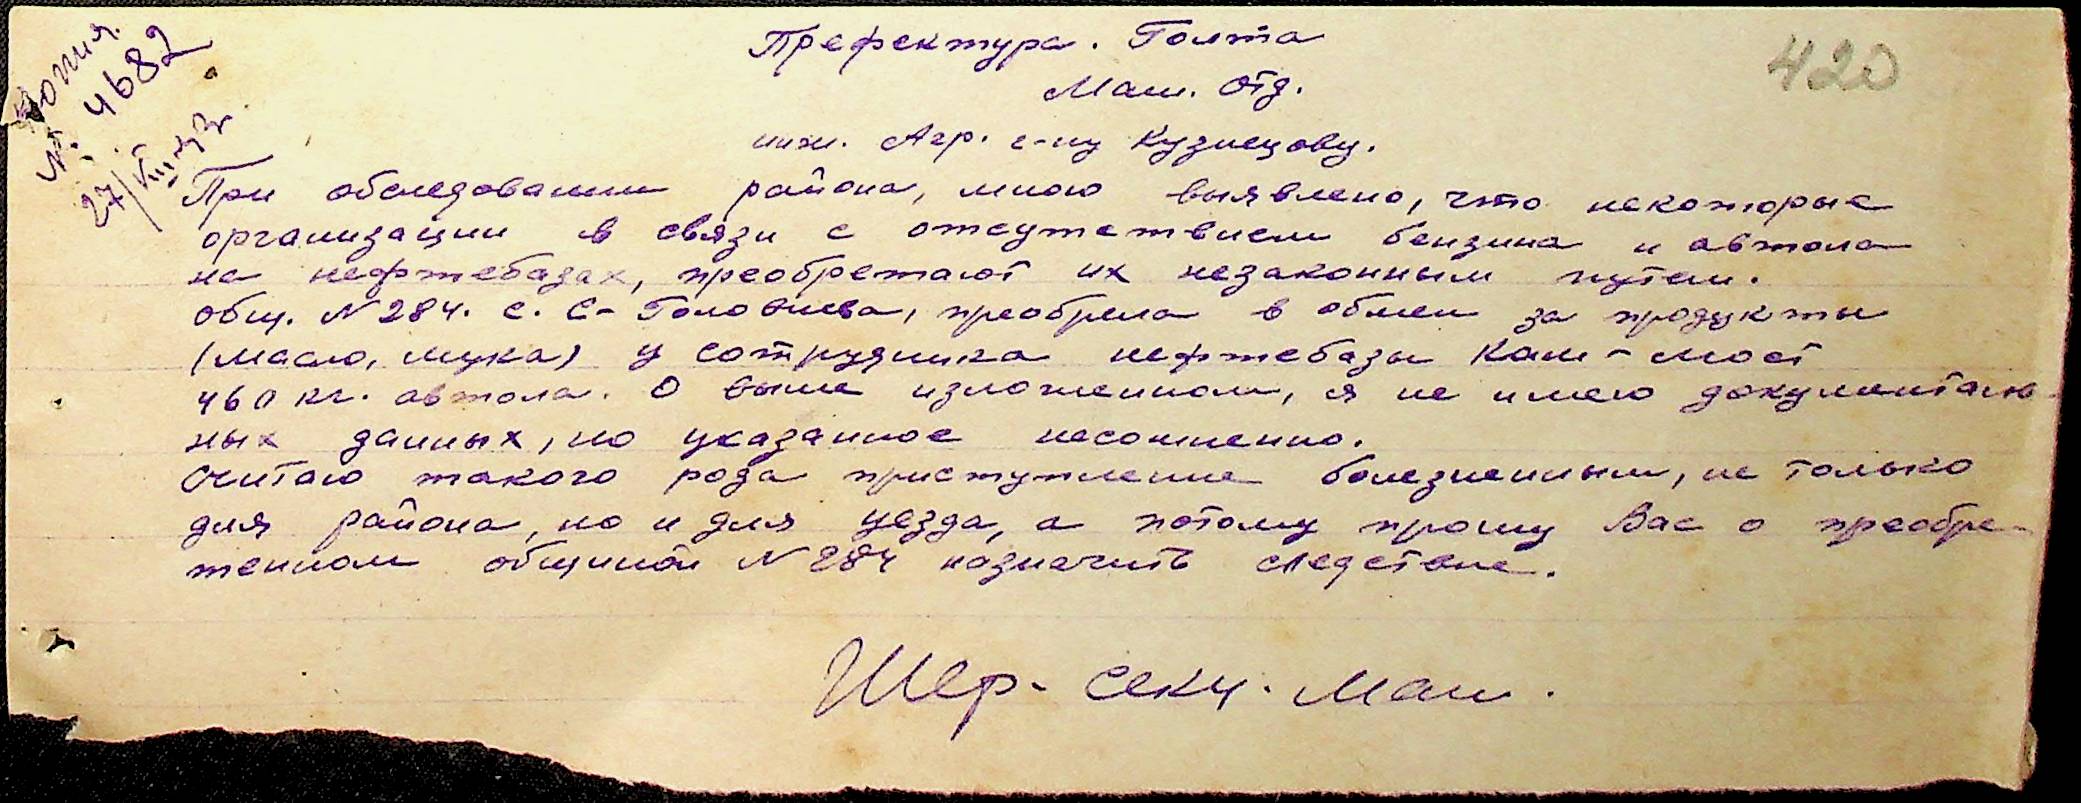 Копия
№. 4682
27/VIII 43г
420
Префектура. Голта
Маш. Отд.
инж. Агр. г-ну Кузнецову.
При обследовании района, мною выявлено, что некоторые
организации в связи с отсутствием бензина и автола
на нефтебазах, преобретают их незаконным путем.
Общ. № 284. с. С-Головнева, преобрела в обмен за продукты
(масло, мука) у сотрудника нефтебазы Кам-мост
460 кг. автола. О выше изложенном, я не имею документаль-
ных данных, но указанное несомненно.
Считаю такого рода приступление болезненным, не только
для района, но и для уезда, а потому прошу Вас о преобре-
тенном общиной № 284 назначить следствие.
Шер. секц. Маш.